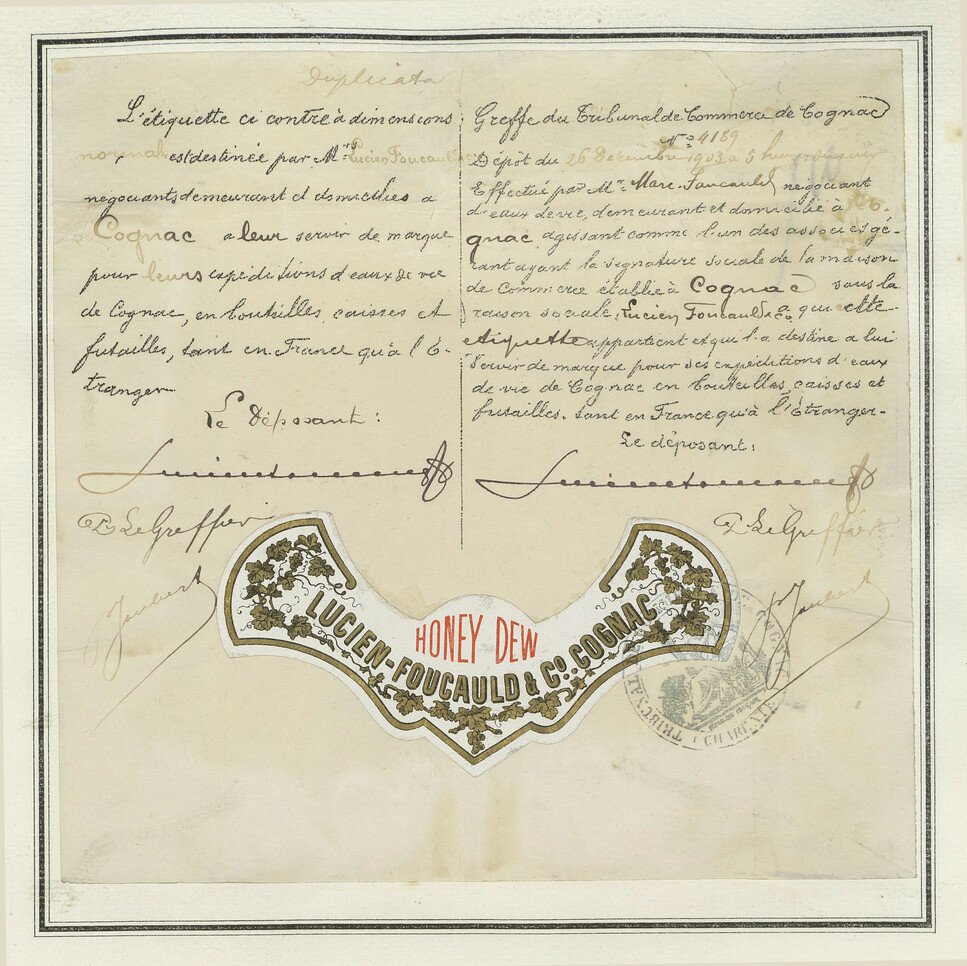 Duplicata
L'étiquette ci contre à dimensions
normales est destinée par Mrs Lucien Foucauld & Co
négociants demeurant et domiciliés a
Cognac a leur servir de marque
pour leurs expéditions d'eaux de vie
de Cognac, en bouteilles, caisses et
futailles, tant en France qu'à l'É-
tranger
Le Déposant:
P. Le Greffier
Joubert
Greffe du Tribunal de Commerce de Cognac
No 4189
Dépôt du 26 Décembre 1903 a 5 heures du soir
Effectué par Mr Marc Foucauld négociant
d'eaux de vie, demeurant et domicilié à Co-
gnac agissant comme l'un des associés gé-
rant ayant la signature sociale de la maison
de Commerce établie à Cognac sous la
raison sociale Lucien Foucauld & Co a qui cette
etiquette appartient et qui l'a destine a lui
servir de marque pour ses expéditions d'eaux
de vie de Cognac en bouteilles caisses et
futailles. tant en France qu'à l'Étranger-
Le déposant:
P. Le Greffier
Joubert
HONEY DEW
LUCIEN-FOUCAULD & Co. COGNAC
TRIBUNAL DE
CHARENTE